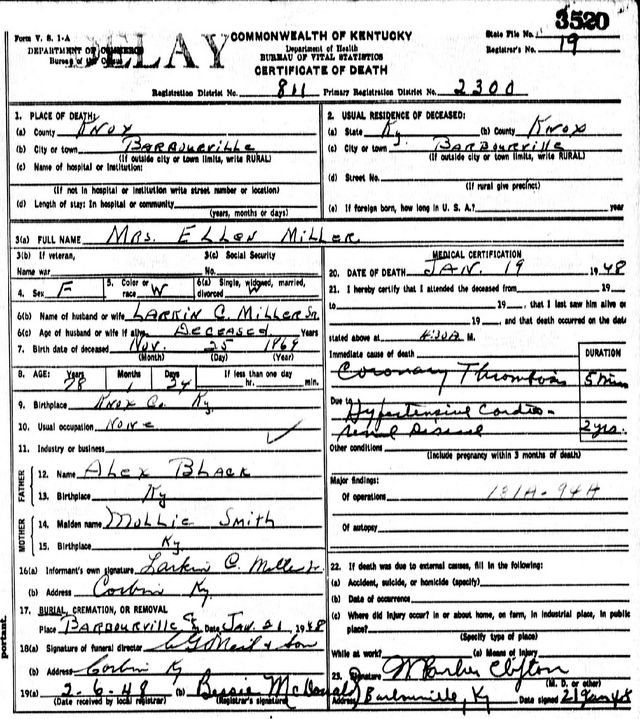 3520
Form V. S. 1-A
DEPARTMENT OF COMMERCE
Bureau of the Census
DELAY
COMMONWEALTH OF KENTUCKY
Department of Health
BUREAU OF VITAL STATISTICS
CERTIFICATE OF DEATH
State File No.
Registrar's No. 19
Registration District No. 811 Primary Registration District No. 2300
1. PLACE OF DEATH:
(a) County Knox
(b) City or town Barbourville
(If outside city or town limits, write RURAL)
(c) Name of hospital or institution:
(If not in hospital or institution write street number or location)
(d) Length of stay: In hospital or community
(years, months or days)
2. USUAL RESIDENCE OF DECEASED:
(a) State Ky. (b) County Knox
(c) City or town Barbourville
(If outside city or town limits, write RURAL)
(d) Street No.
(If rural give precinct)
(e) If foreign born, how long in U. S. A.? year
3(a) FULL NAME Mrs. Ellen Miller
3(b) If veteran,
Name war
3(c) Social Security
No.
4. Sex F
5. Color or
race W
6(a) Single, widowed, married,
divorced W
6(b) Name of husband or wife Larkin C. Miller Sr.
6(c) Age of husband or wife if alive Deceased Years
7. Birth date of deceased Nov. 25 1869
(Month) (Day) (Year)
8. AGE: Years Months Days If less than one day
78 1 24 hr. min.
9. Birthplace Knox Co. Ky.
10. Usual occupation None
11. Industry or business
FATHER
12. Name Alex Black
13. Birthplace Ky
MOTHER
14. Maiden name Mollie Smith
15. Birthplace Ky
16(a) Informant's own signature Larkin C. Miller Jr.
(b) Address Corbin Ky.
17. BURIAL, CREMATION, OR REMOVAL
Place Barbourville Ky Date Jan. 21, 1948
18(a) Signature of funeral director & Son
(b) Address Corbin Ky
19(a) 2-6-48 (b) Bessie McDonald
(Date received by local registrar) (Registrar's signature)
MEDICAL CERTIFICATION
20. DATE OF DEATH Jan. 19 1948
21. I hereby certify that I attended the deceased from 19
to 19 , that I last saw him alive on
19 , and that death occurred on the date
stated above at 4:30A M.
Immediate cause of death DURATION
Coronary Thrombosis 5 min
Due to
Hypertensive Cardio-
renal Disease 2 yrs.
Other conditions
(Include pregnancy within 3 months of death)
Major findings:
Of operations 131A-94A
Of autopsy
22. If death was due to external causes, fill in the following:
(a) Accident, suicide, or homicide (specify)
(b) Date of occurrence
(c) Where did injury occur? In or about home, on farm, in industrial place, in public
place?
(Specify type of place)
While at work? (e) Means of Injury
23. Signature Parker Clifton
(M. D. or other)
Address Barbourville, Ky Date signed 21 Jan 48
portant.